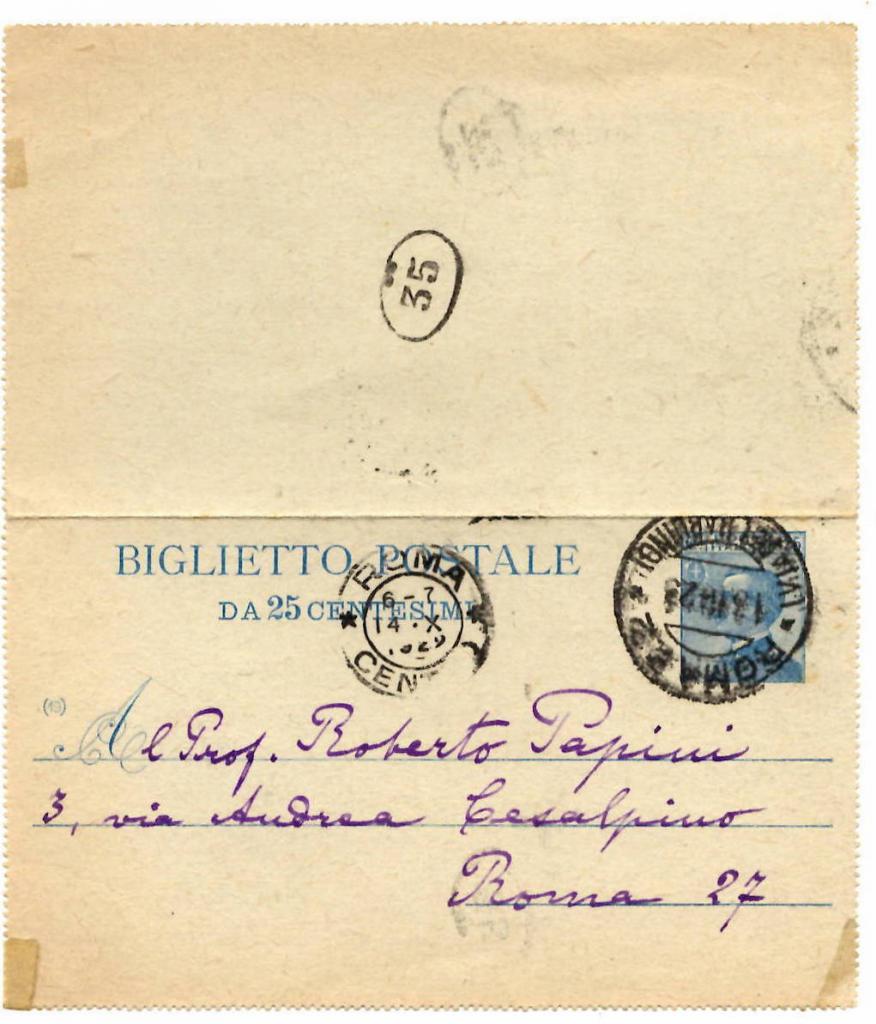 35
BIGLIETTO POSTALE
DA 25 CENTESIMI
ROMA
6-7
14 · X
1929
CENT
ROMA 22
(13)
Al Prof. Roberto Papini
3, via Andrea Cesalpino
Roma 27